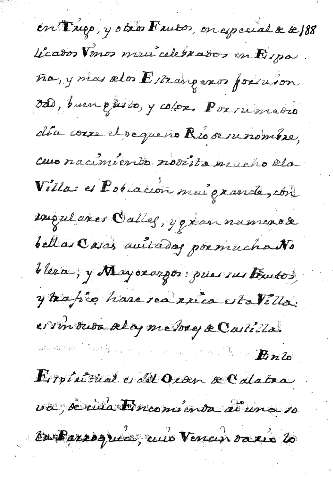 en Trigo, y otros Frutos, en especial de de 188
licados Vinos mui celebrados en Espa
ña, y mas de los Estrangeros por su bon
dad, buen gusto, y color. Por su medio
dia corre el pequeño Rio de su nombre,
cuio nacimiento no dista mucho de la
Villa: es Poblacion mui grande, con
regulares Calles, y gran numero de
bellas Casas avitadas por mucha No
bleza; y Mayorazgos: pues sus Frutos,
y trafico, hace sea rica esta Villa:
es sin duda de las mejores de Castilla.
En lo
Espiritual es del Orden de Calatra
va, de cuia Encomienda ai una so
la Parroquia, cuio Vecindario lo